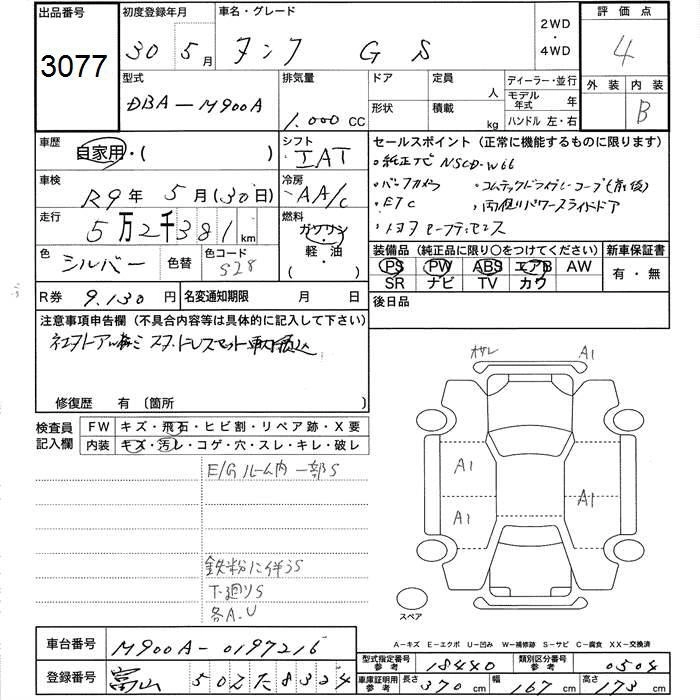 出品番号 初度登録年月 車名・グレード 2WD・4WD 評価点
3077 30 5月 タンク G S 4
型式 排気量 ドア 定員 人 ディーラー・並行 外装 内装
DBA-M900A 1.000 CC 形状 積載 kg モデル年式 年 B
ハンドル 左・右
車歴 自家用・( ) シフト IAT セールスポイント(正常に機能するものに限ります)
・純正ナビ NSCD-W66
車検 R9年 5月(30日) 冷房 AA/C ・バックカメラ ・コムテックドライブレコーダ(前後)
・ETC ・両側パワースライドドア
走行 5万2千381km 燃料 ガソリン・軽・油 ( )
・トヨタセーフティセンス
色 シルバー 色替 色コード S28
装備品(純正品に限り○をつけてください) 新車保証書
PS PW ABS エアB AW 有・無
SR ナビ TV カワ
R券 9.130円 名変通知期限 月 日 後日品
注意事項申告欄(不具合内容等は具体的に記入して下さい)
オサレ A1
修復歴 有〔箇所 〕
検査員記入欄 FW キズ・飛石・ヒビ割・リペア跡・X要
内装 キズ・汚レ・コゲ・穴・スレ・キレ・破レ
E/Gルーム内一部S
A1
A1
A1
鉄粉に伴うS
下廻りS
各A.U
スペア
A-キズ E-エクボ U-凹み W-補修跡 S-サビ C-腐食 XX-交換済
車台番号 M900A-0197216
型式指定番号参考 18440 類別区分番号参考 0504
登録番号 富山 502 た 8324
車庫証明用参考 長さ 370cm 幅 167cm 高さ 173cm